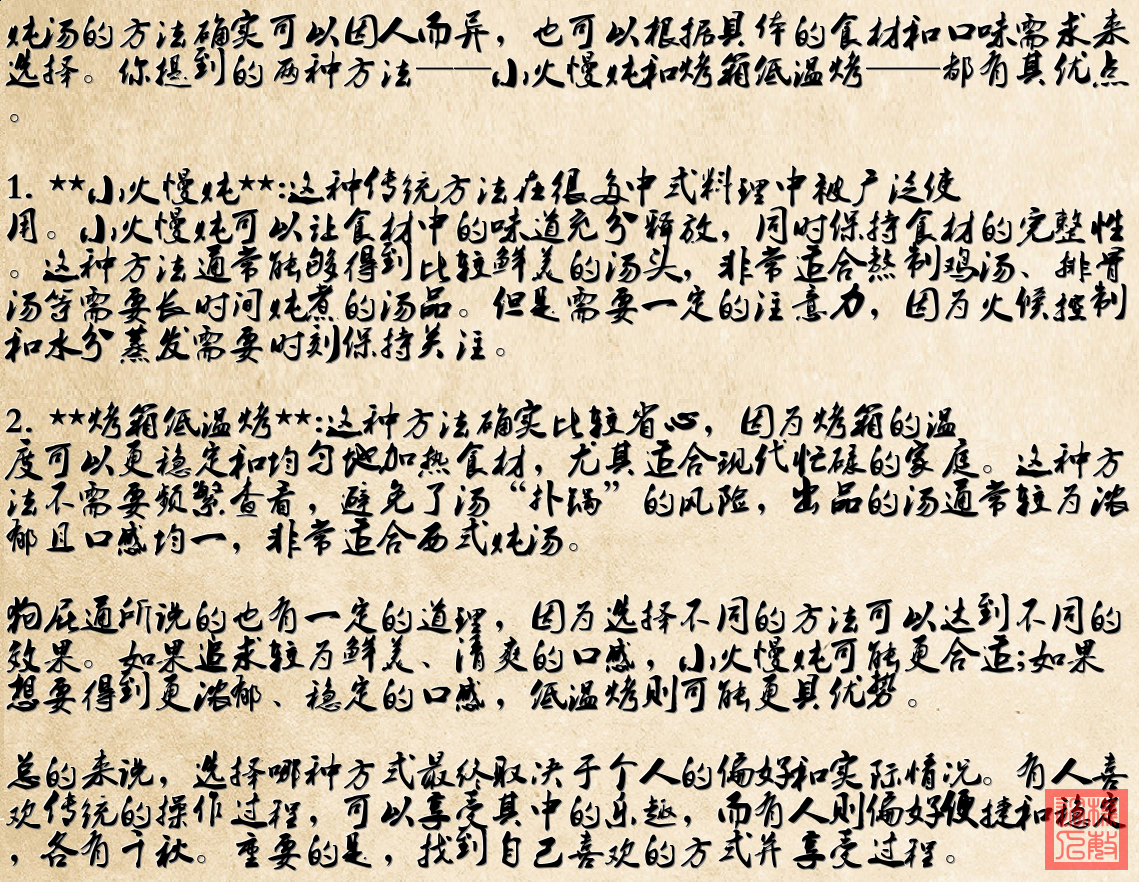 炖汤的方法确实可以因人而异，也可以根据具体的食材和口味需求来
选择。你提到的两种方法——小火慢炖和烤箱低温烤——都有其优点
。
1. **小火慢炖**:这种传统方法在很多中式料理中被广泛使
用。小火慢炖可以让食材中的味道充分释放，同时保持食材的完整性
。这种方法通常能够得到比较鲜美的汤头，非常适合熬制鸡汤、排骨
汤等需要长时间炖煮的汤品。但是需要一定的注意力，因为火候控制
和水分蒸发需要时刻保持关注。
2. **烤箱低温烤**:这种方法确实比较省心，因为烤箱的温
度可以更稳定和均匀地加热食材，尤其适合现代忙碌的家庭。这种方
法不需要频繁查看，避免了汤“扑锅”的风险，出品的汤通常较为浓
郁且口感均一，非常适合西式炖汤。
狗屁通所说的也有一定的道理，因为选择不同的方法可以达到不同的
效果。如果追求较为鲜美、清爽的口感，小火慢炖可能更合适;如果
想要得到更浓郁、稳定的口感，低温烤则可能更具优势。
总的来说，选择哪种方式最终取决于个人的偏好和实际情况。有人喜
欢传统的操作过程，可以享受其中的乐趣，而有人则偏好便捷和稳定
，各有千秋。重要的是，找到自己喜欢的方式并享受过程。